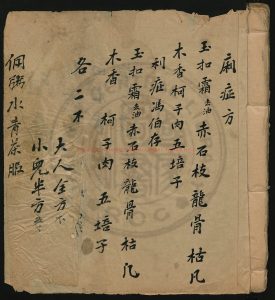 痢症方
玉扣霜去油 赤石枝 龍骨 枯凡
木香 柯子肉 五培子
利症馮伯存
玉扣霜去油 赤石枝 龍骨 枯凡
木香 柯子肉 五培子
各二不
大人全方
小兒半方
水青茶服